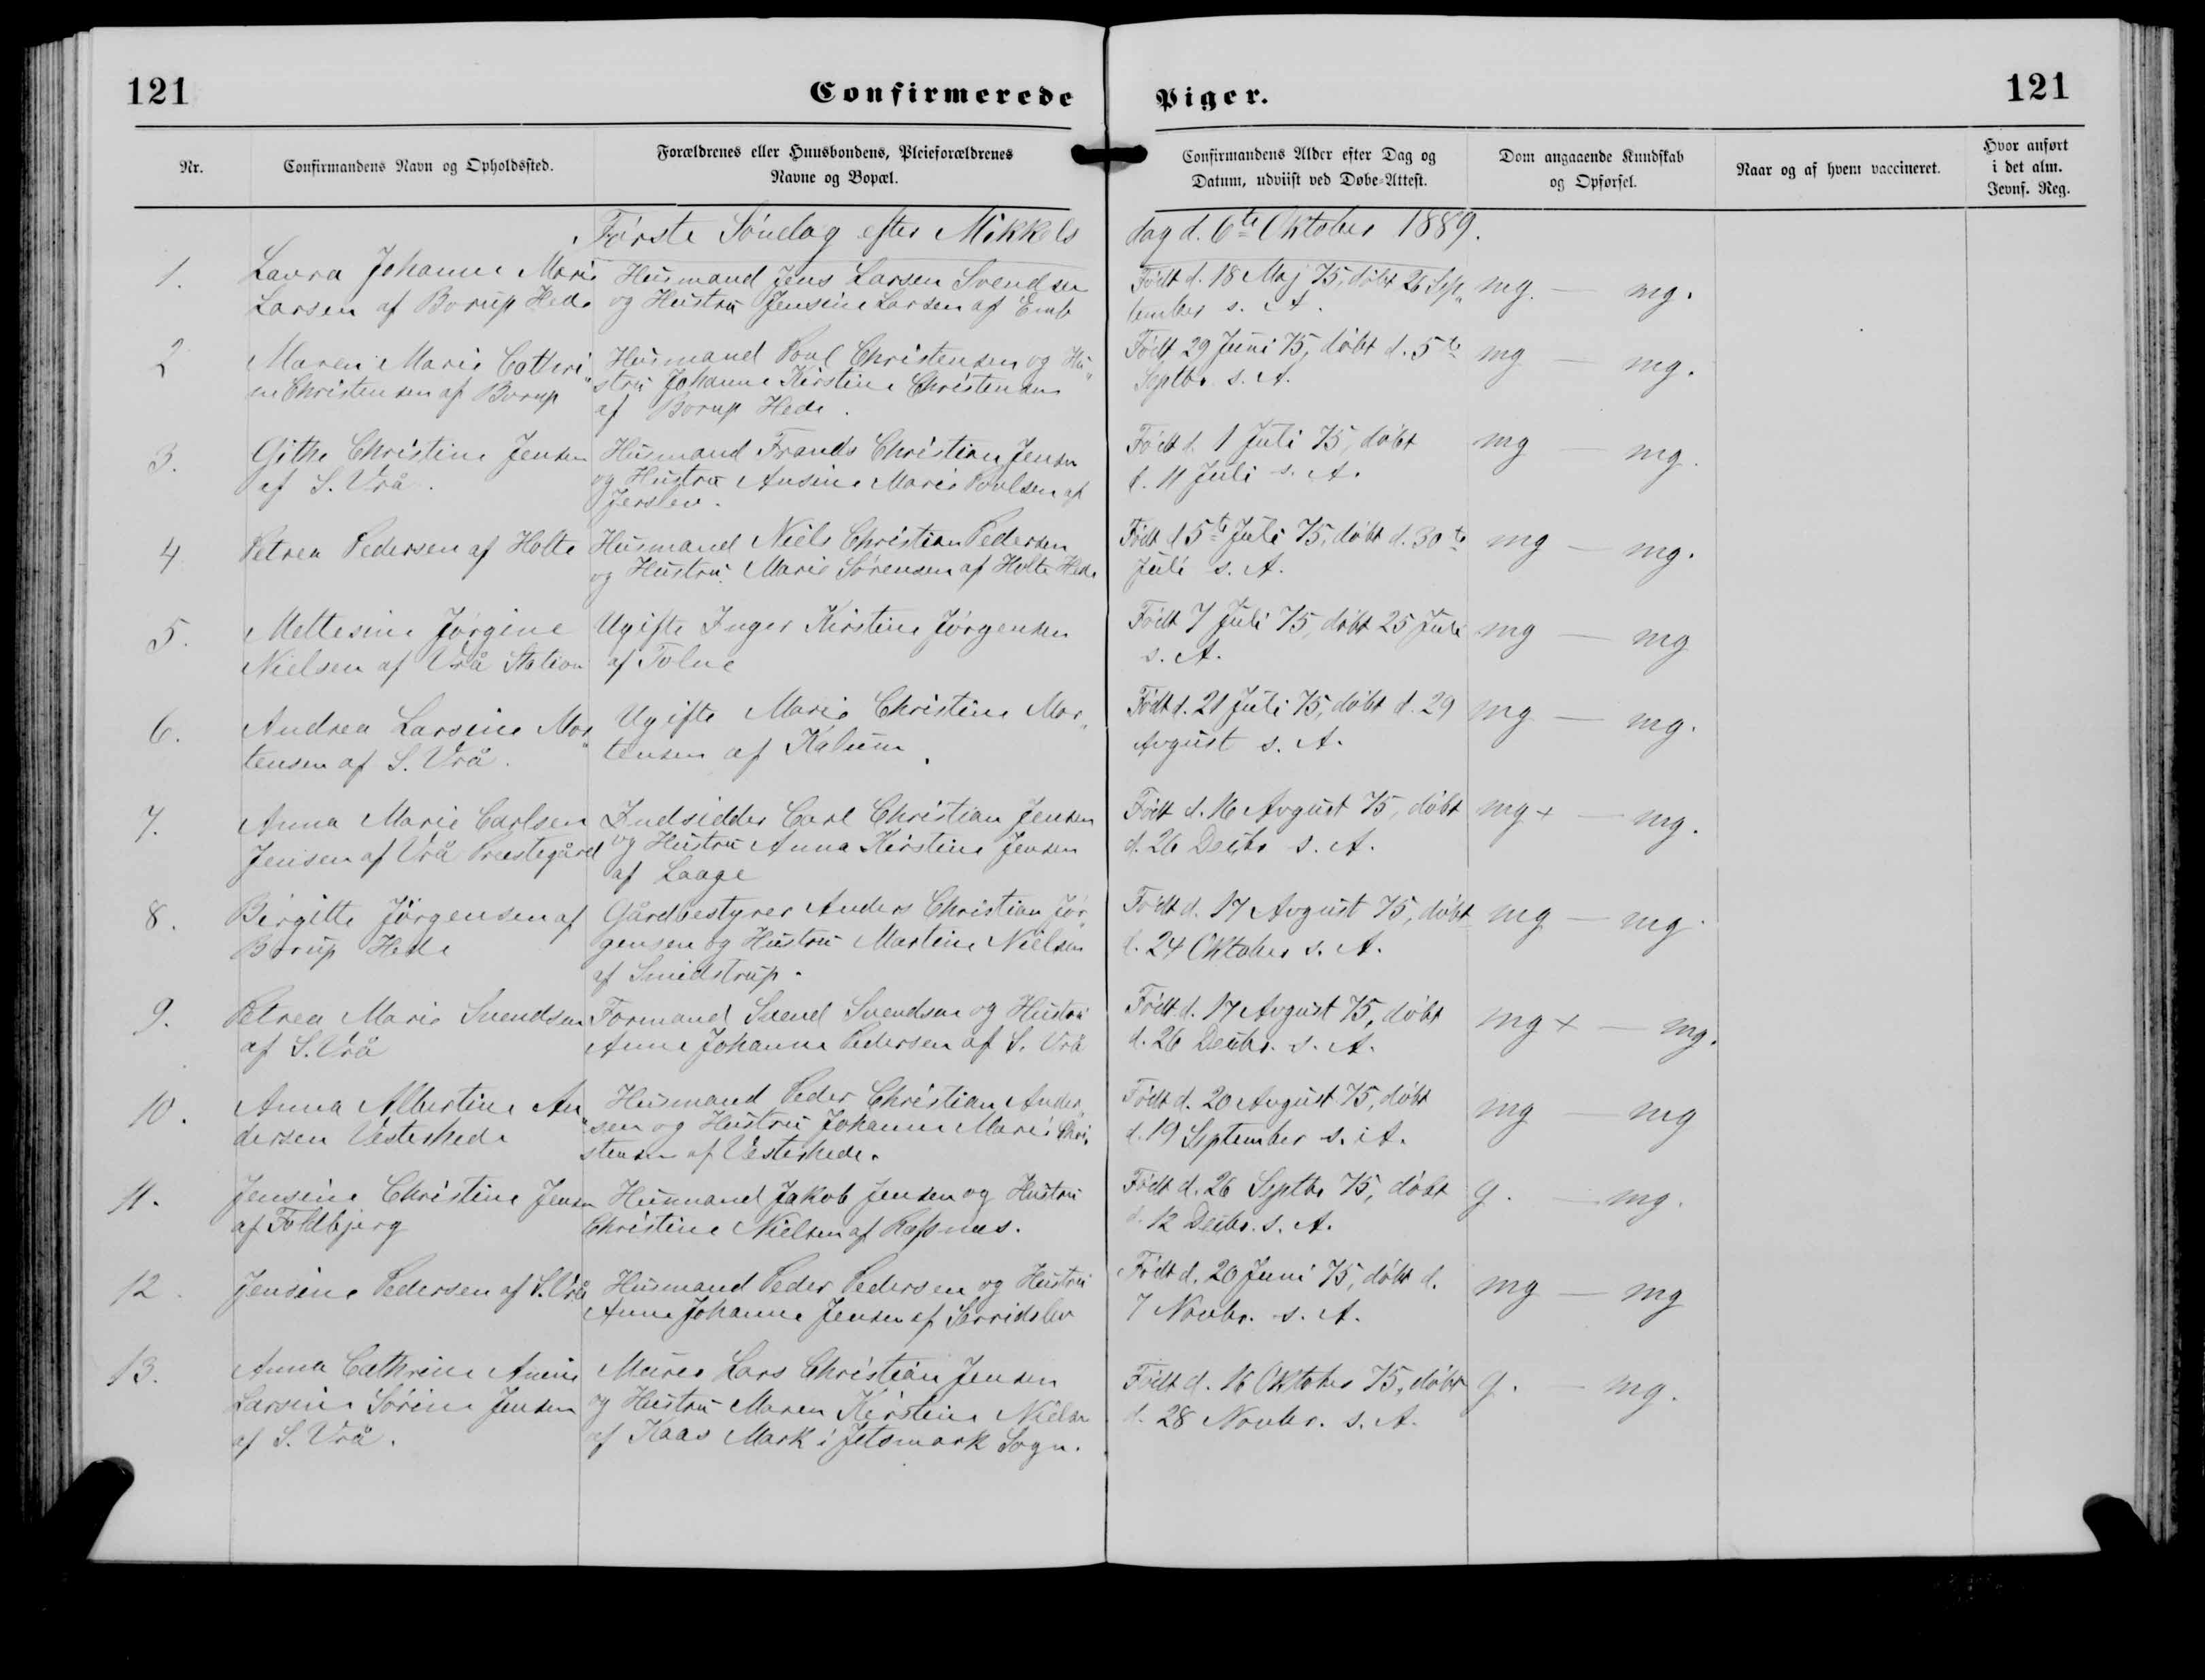 121
Confirmerede
Piger.
121
Nr.
Confirmandens Navn og Opholdssted.
Forældrenes eller Huusbondens, Pleieforældrenes
Navne og Bopæl.
Confirmandens Alder efter Dag og
Datum, udviist ved Døbe-Attest.
Dom angaaende Kundskab
og Opførsel.
Naar og af hvem vaccineret.
Hvor anført
i det alm.
Jevnf. Reg.
Første Søndag efter Mikkels
dag d. 6te Oktober 1889.
1.
Laura Johanne Marie
Larsen af Borup Hede
Husmand Jens Larsen Svendsen
og Hustru Jensine Larsen af Emb
Født d. 18 Maj 75, døbt 26 Sep„
tember s. A.
mg. — mg.
2
Maren Marie Cathri„
ne Christensen af Borup
Husmand Poul Christensen og Hu„
stru Johanne Kirstine Christensen
af Borup Hede.
Født 29 Juni 75, døbt d. 5te
Septbr s. A.
mg — mg.
3.
Githe Christine Jensen
af S. Vrå.
Husmand Frands Christian Jensen
og Hustru Ansine Marie Poulsen af
Jerslev.
Født d. 1 Juli 75, døbt
d. 11 Juli s. A.
mg — mg.
4
Petrea Pedersen af Holte
Husmand Niels Christian Pedersen
og Hustru Marie Sørensen af Holte Hede
Født d 5te Juli 75, døbt d. 30te
Juli s. A.
mg — mg.
5.
Mettesine Jørgine
Nielsen af Vrå Station
Ugifte Inger Kirstine Jørgensen
af Tolne
Født 7 Juli 75, døbt 25 Juli
s. A.
mg — mg
6.
Andrea Larsine Mor„
tensen af S. Vrå.
Ugifte Marie Christine Mor„
tensen af Kalum.
Født d. 21 Juli 75, døbt d. 29
Avgust s. A.
mg — mg.
7.
Anna Marie Carlsen
Jensen af Vrå Præstegård
Indsidder Carl Christian Jensen
og Hustru Anna Kirstine Jensen
af Laage
Født d. 16 Avgust 75, døbt
d. 26 Decbr s. A.
mg+ — mg.
8.
Birgitte Jørgensen af
Borup Hede
Gårdbestyrer Anders Christian Jør„
gensen og Hustru Martine Nielsen
af Smidstrup.
Født d. 17 Avgust 75, døbt
d. 24 Oktober s. A.
mg — mg.
9.
Petrea Marie Svendsen
af S. Vrå
Formand Svend Svendsen og Hustru
Anne Johanne Pedersen af S. Vrå
Født d. 17 Avgust 75, døbt
d. 26 Decbr. s. A.
mg+ — mg.
10.
Anna Albertine An„
dersen Vesterhede
Husmand Peder Christian Ander„
sen og Hustru Johanne Marie Chri„
stensen af Vesterhede.
Født d. 20 Avgust 75, døbt
d. 19 September s. A.
mg — mg
11.
Jensine Christine Jensen
af Foldbjerg
Husmand Jakob Jensen og Hustru
Christine Nielsen af
Født d. 26 Septbr 75, døbt
d. 12 Decbr. s. A.
g. — mg.
12.
Jensine Pedersen af S. Vrå
Husmand Peder Pedersen og Hustru
Anne Johanne Jensen af Serridslev
Født d. 20 Juni 75, døbt d.
7 Novbr. s. A.
mg — mg
13.
Anna Cathrine Amine
Larsine Sørine Jensen
af S. Vrå.
Murer Lars Christian Jensen
og Hustru Maren Kirstine Nielsen
af Kaas Mark i Jetsmark Sogn.
Født d. 16 Oktober 75, døbt
d. 28 Novbr. s. A.
g. — mg.